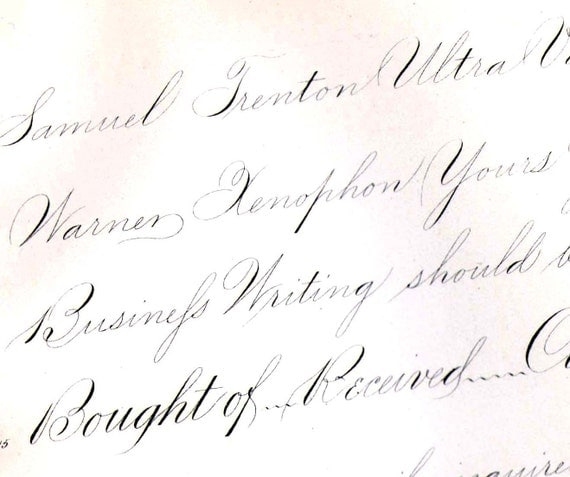 Samuel Trenton Ultra
Warner Xenophon Yours
Busineſs Writing should
Bought of ... Received